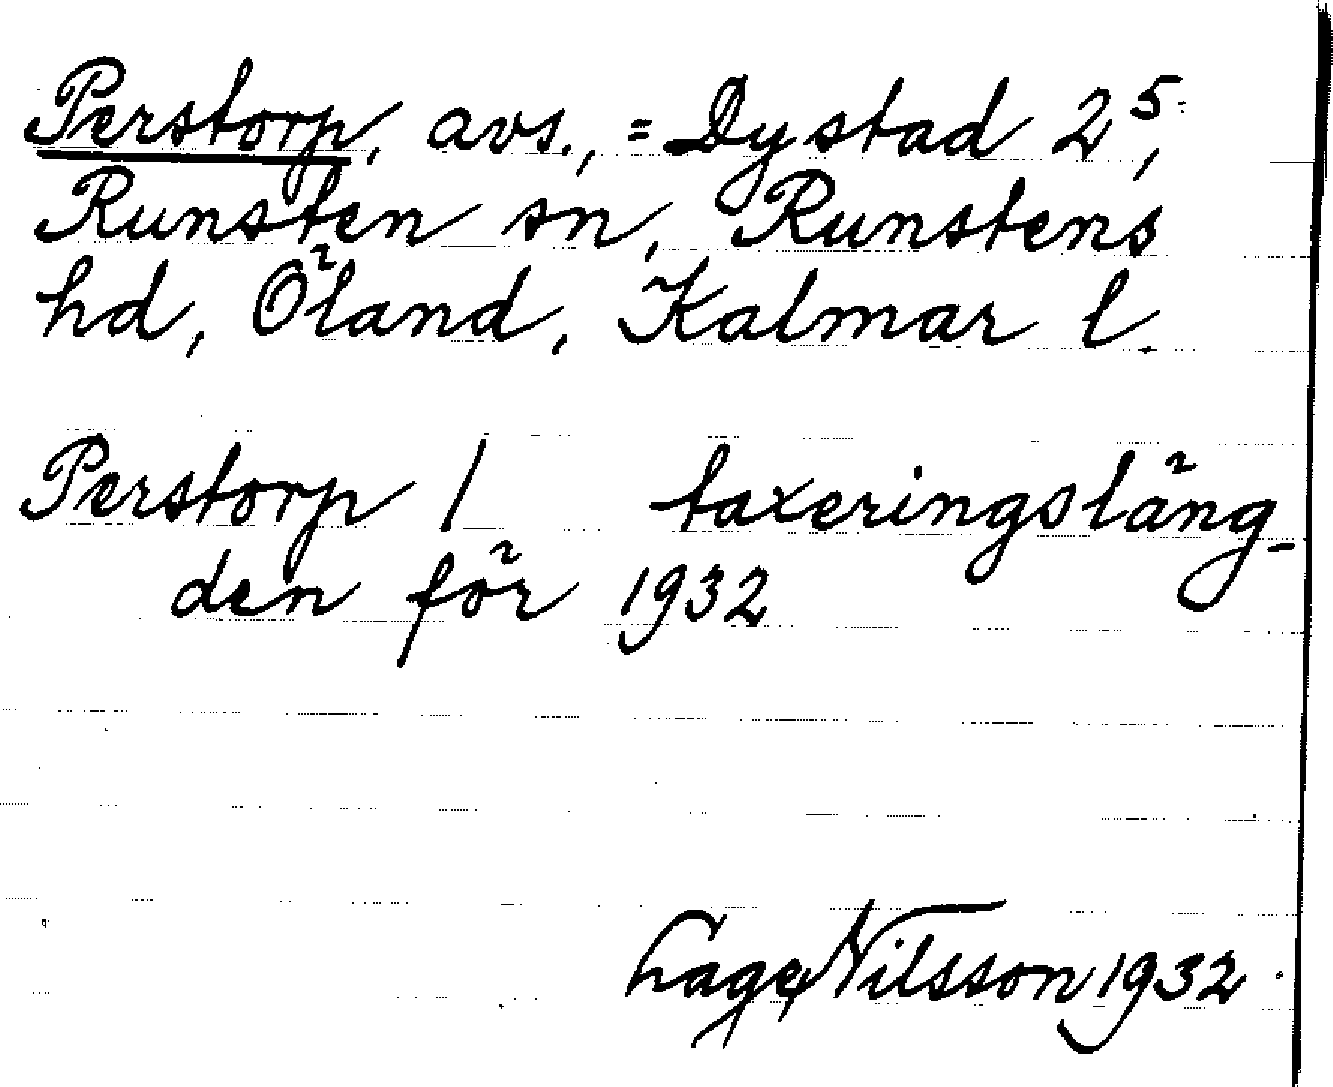 Perstorp, avs., = Dystad 2⁵,
Runsten sn, Runstens
hd, Öland, Kalmar l.
Perstorp / taxeringsläng-
den för 1932
Lage Nilsson 1932